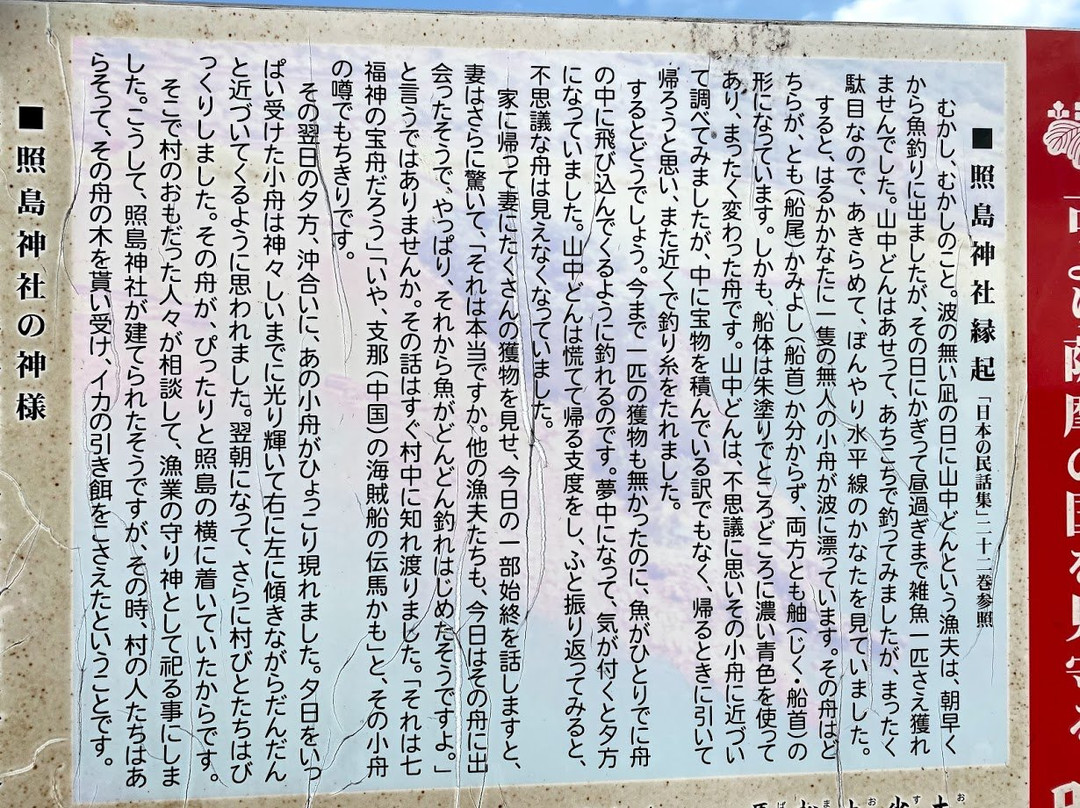 ■照島神社縁起「日本の民話集」二十二巻参照
むかし、むかしのこと。波の無い凪の日に山中どんという漁夫は、朝早く
から魚釣りに出ましたが、その日にかぎって昼過ぎまで雑魚一匹さえ獲れ
ませんでした。山中どんはあせって、あちこちで釣ってみましたが、まったく
駄目なので、あきらめて、ぼんやり水平線のかなたを見ていました。
すると、はるかかなたに一隻の無人の小舟が波に漂っています。その舟はど
ちらが、とも(船尾)かみよし(船首)か分からず、両方とも舳(じく・船首)の
形になっています。しかも、船体は朱塗りでところどころに濃い青色を使って
あり、まったく変わった舟です。山中どんは、不思議に思いその小舟に近づい
て調べてみましたが、中に宝物を積んでいる訳でもなく、帰るときに引いて
帰ろうと思い、また近くで釣り糸をたれました。
するとどうでしょう。今まで一匹の獲物も無かったのに、魚がひとりでに舟
の中に飛び込んでくるように釣れるのです。夢中になって、気が付くと夕方
になっていました。山中どんは慌てて帰る支度をし、ふと振り返ってみると、
不思議な舟は見えなくなっていました。
家に帰って妻にたくさんの獲物を見せ、今日の一部始終を話しますと、
妻はさらに驚いて、「それは本当ですか。他の漁夫たちも、今日はその舟に出
会ったそうで、やっぱり、それから魚がどんどん釣れはじめたそうですよ。」
と言うではありませんか。その話はすぐ村中に知れ渡りました。「それは七
福神の宝舟だろう」「いや、支那(中国)の海賊船の伝馬かも」と、その小舟
の噂でもちきりです。
その翌日の夕方、沖合いに、あの小舟がひょっこり現れました。夕日をいっ
ぱい受けた小舟は神々しいまでに光り輝いて右に左に傾きながらだんだん
と近づいてくるように思われました。翌朝になって、さらに村びとたちはび
っくりしました。その舟が、ぴったりと照島の横に着いていたからです。
そこで村のおもだった人々が相談して、漁業の守り神として祀る事にしま
した。こうして、照島神社が建てられたそうですが、その時、村の人たちはあ
らそって、その舟の木を貰い受け、イカの引き餌をこさえたということです。
■照島神社の神様